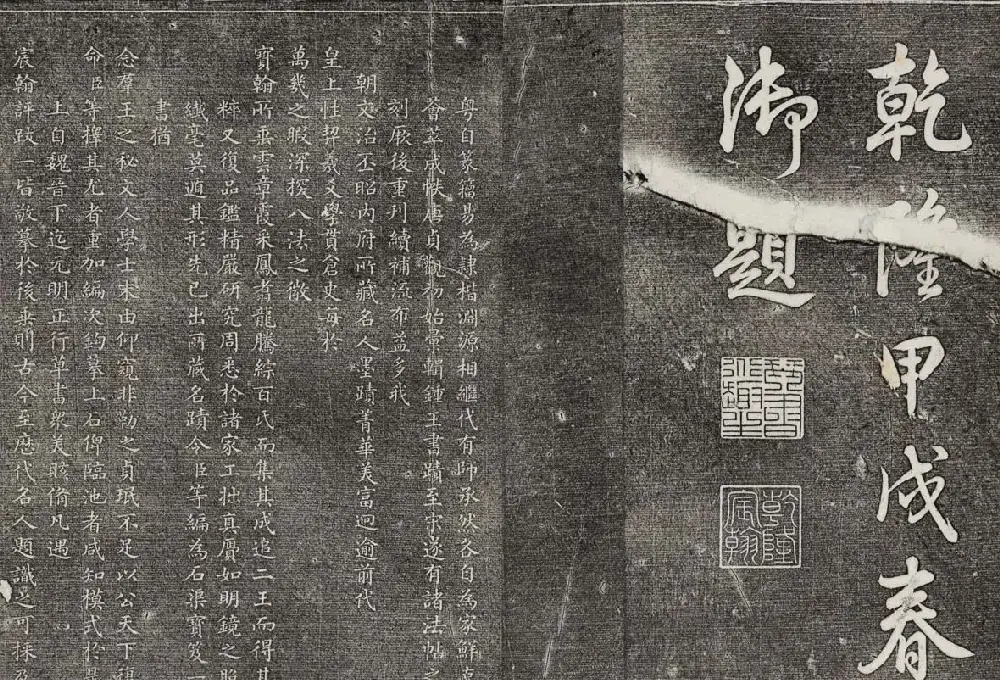 乾隆甲戌春
御題
乾隆
宸翰
粵自篆籀易為隸楷淵源相繼代有師承然各自為家鮮克
薈萃成帙唐貞觀初始彙輯鍾王書蹟至宋遂有諸法帖之
刻厥後重刊續補流布益多我
朝文治丕昭內府所藏名人墨蹟菁華美富迥逾前代
皇上性契羲文學貫倉史每於
萬幾之暇深探八法之微
寶翰所垂雲章霞采鳳翥龍騰綜百氏而集其成追二王而得其
粹又復品鑑精嚴研究周悉於諸家工拙真贗如明鏡之照
纖毫莫遁其形先已出所藏名蹟令臣等編為石渠寶笈一
書猶
念羣玉之秘文人學士末由仰窺非勒之貞珉不足以公天下複
命臣等擇其尤者重加編次鉤摹上石俾臨池者咸知模式於是
上自魏晉下迄元明正行草書眾美賅備凡遇
宸翰評跋一皆敬摹於後垂則古今至歷代名人題識足可採